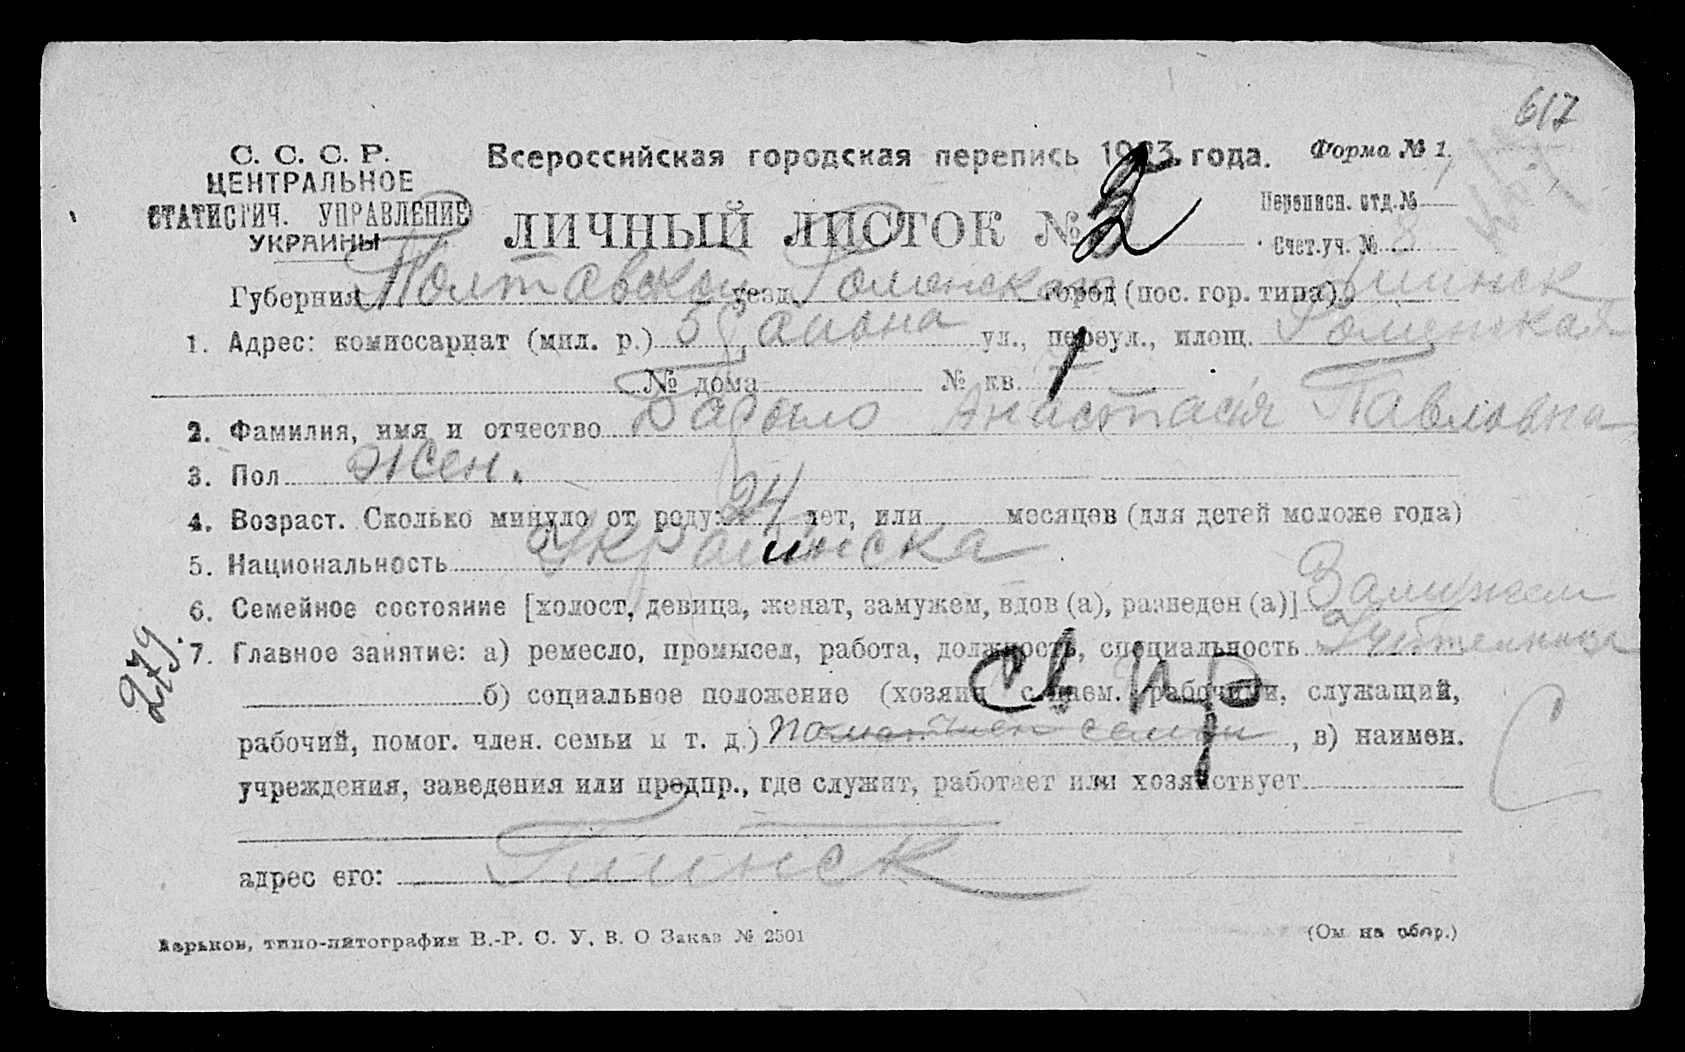 617
С. С. С. Р.
ЦЕНТРАЛЬНОЕ
СТАТИСТИЧ. УПРАВЛЕНИЕ
УКРАИНЫ
Всероссийская городская перепись 1923 года.
Форма № 1.
ЛИЧНЫЙ ЛИСТОК № 2
Переписн. отд. №
Счет. уч. № 8
Губерния Полтавской уезд Роменской город (пос. гор. типа) Глинск
1. Адрес: комиссариат (мил. р.) 5 ул., переул., площ. Роменская
№ дома № кв. 1
2. Фамилия, имя и отчество Анастасия Павловна
3. Пол жен.
4. Возраст. Сколько минуло от роду: 24 лет, или месяцев (для детей моложе года)
5. Национальность Украинска
6. Семейное состояние [холост, девица, женат, замужем, вдов (а), разведен (а)] Замужем
7. Главное занятие: а) ремесло, промысел, работа, должность, специальность Учительница
279.
б) социальное положение (хозяин с наем. рабочими, служащий,
рабочий, помог. член. семьи и т. д.) помог. член семьи, в) наимен.
св пр
С
учреждения, заведения или предпр., где служит, работает или хозяйствует
адрес его: Глинск
Харьков, типо-литография В.-Р. С. У. В. О Заказ № 2501
(См. на обор.)